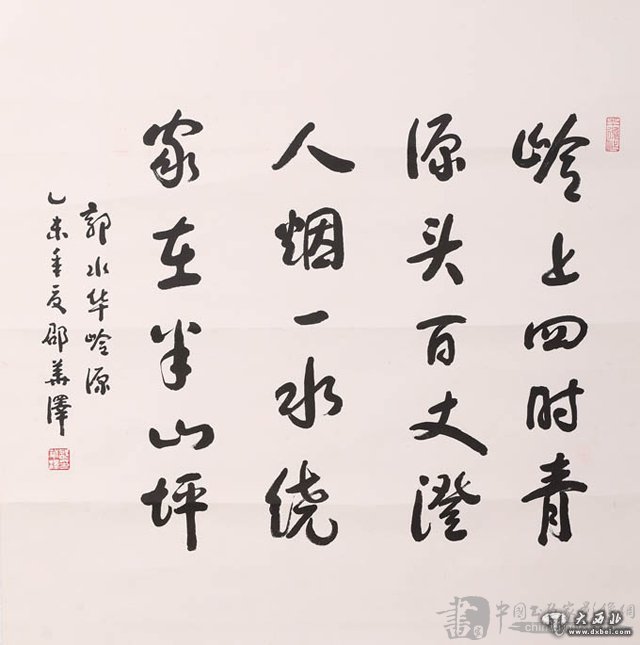 岭上四时青
源头百丈澄
人烟一水绕
家在半山坪
郭水华岭源
乙未年夏邵华泽
書 中国书画家影像網
大西北
www.dxbei.com